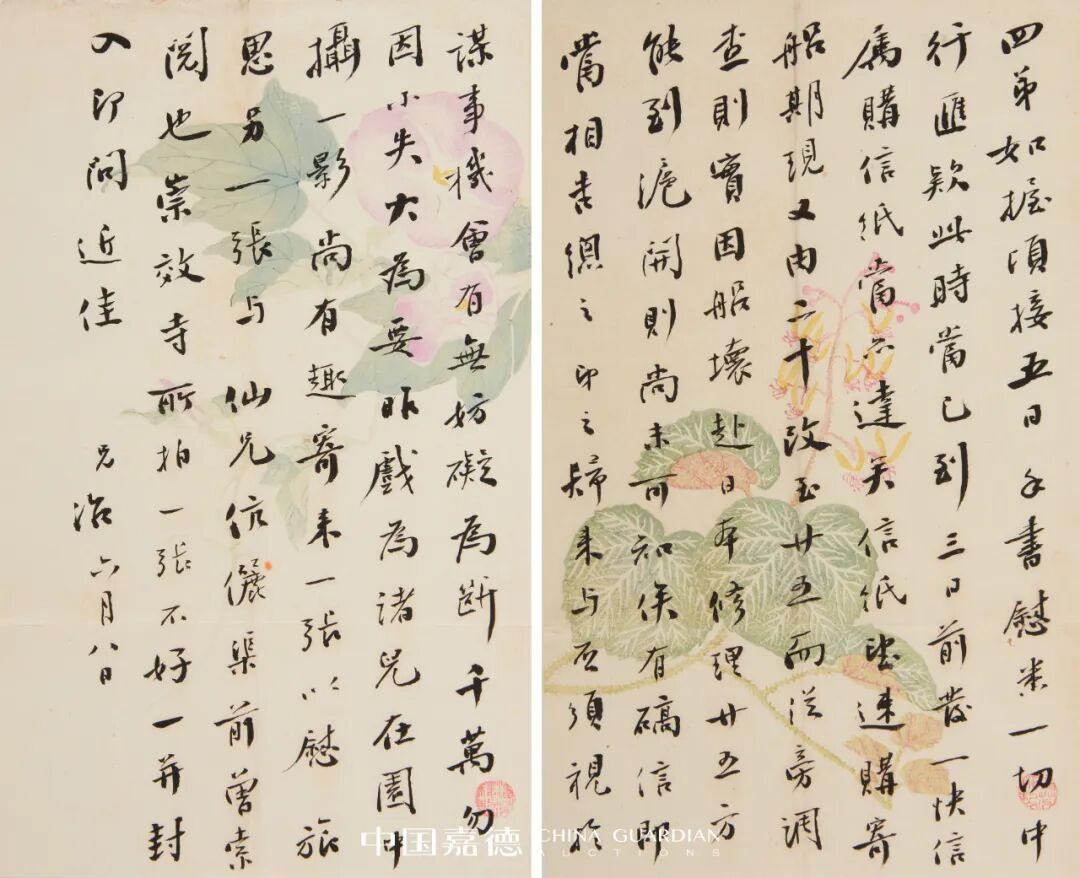 四弟如握頃接五日手書慰悉一切中
行匯款此時當已到三日前發一快信
屬購信紙當亦達矣信紙望速購寄
船期現又由二十改至廿五而從旁調
查則實因船壞赴日本修理廿五方
能到滬開則尚未可知俟有確信即
當相告總之印之歸來与否須視於
謀事機會有無妨礙為斷千萬勿
因小失大為要昨戲為諸兒在園中
攝一影尚有趣寄來一張以慰旅
思另一張与仙兄伉儷渠前曾索
閱也崇效寺所拍一張不好一并封
入即問近佳
兄治六月八日
中国嘉德 CHINA GUARDIAN
AUCTIONS